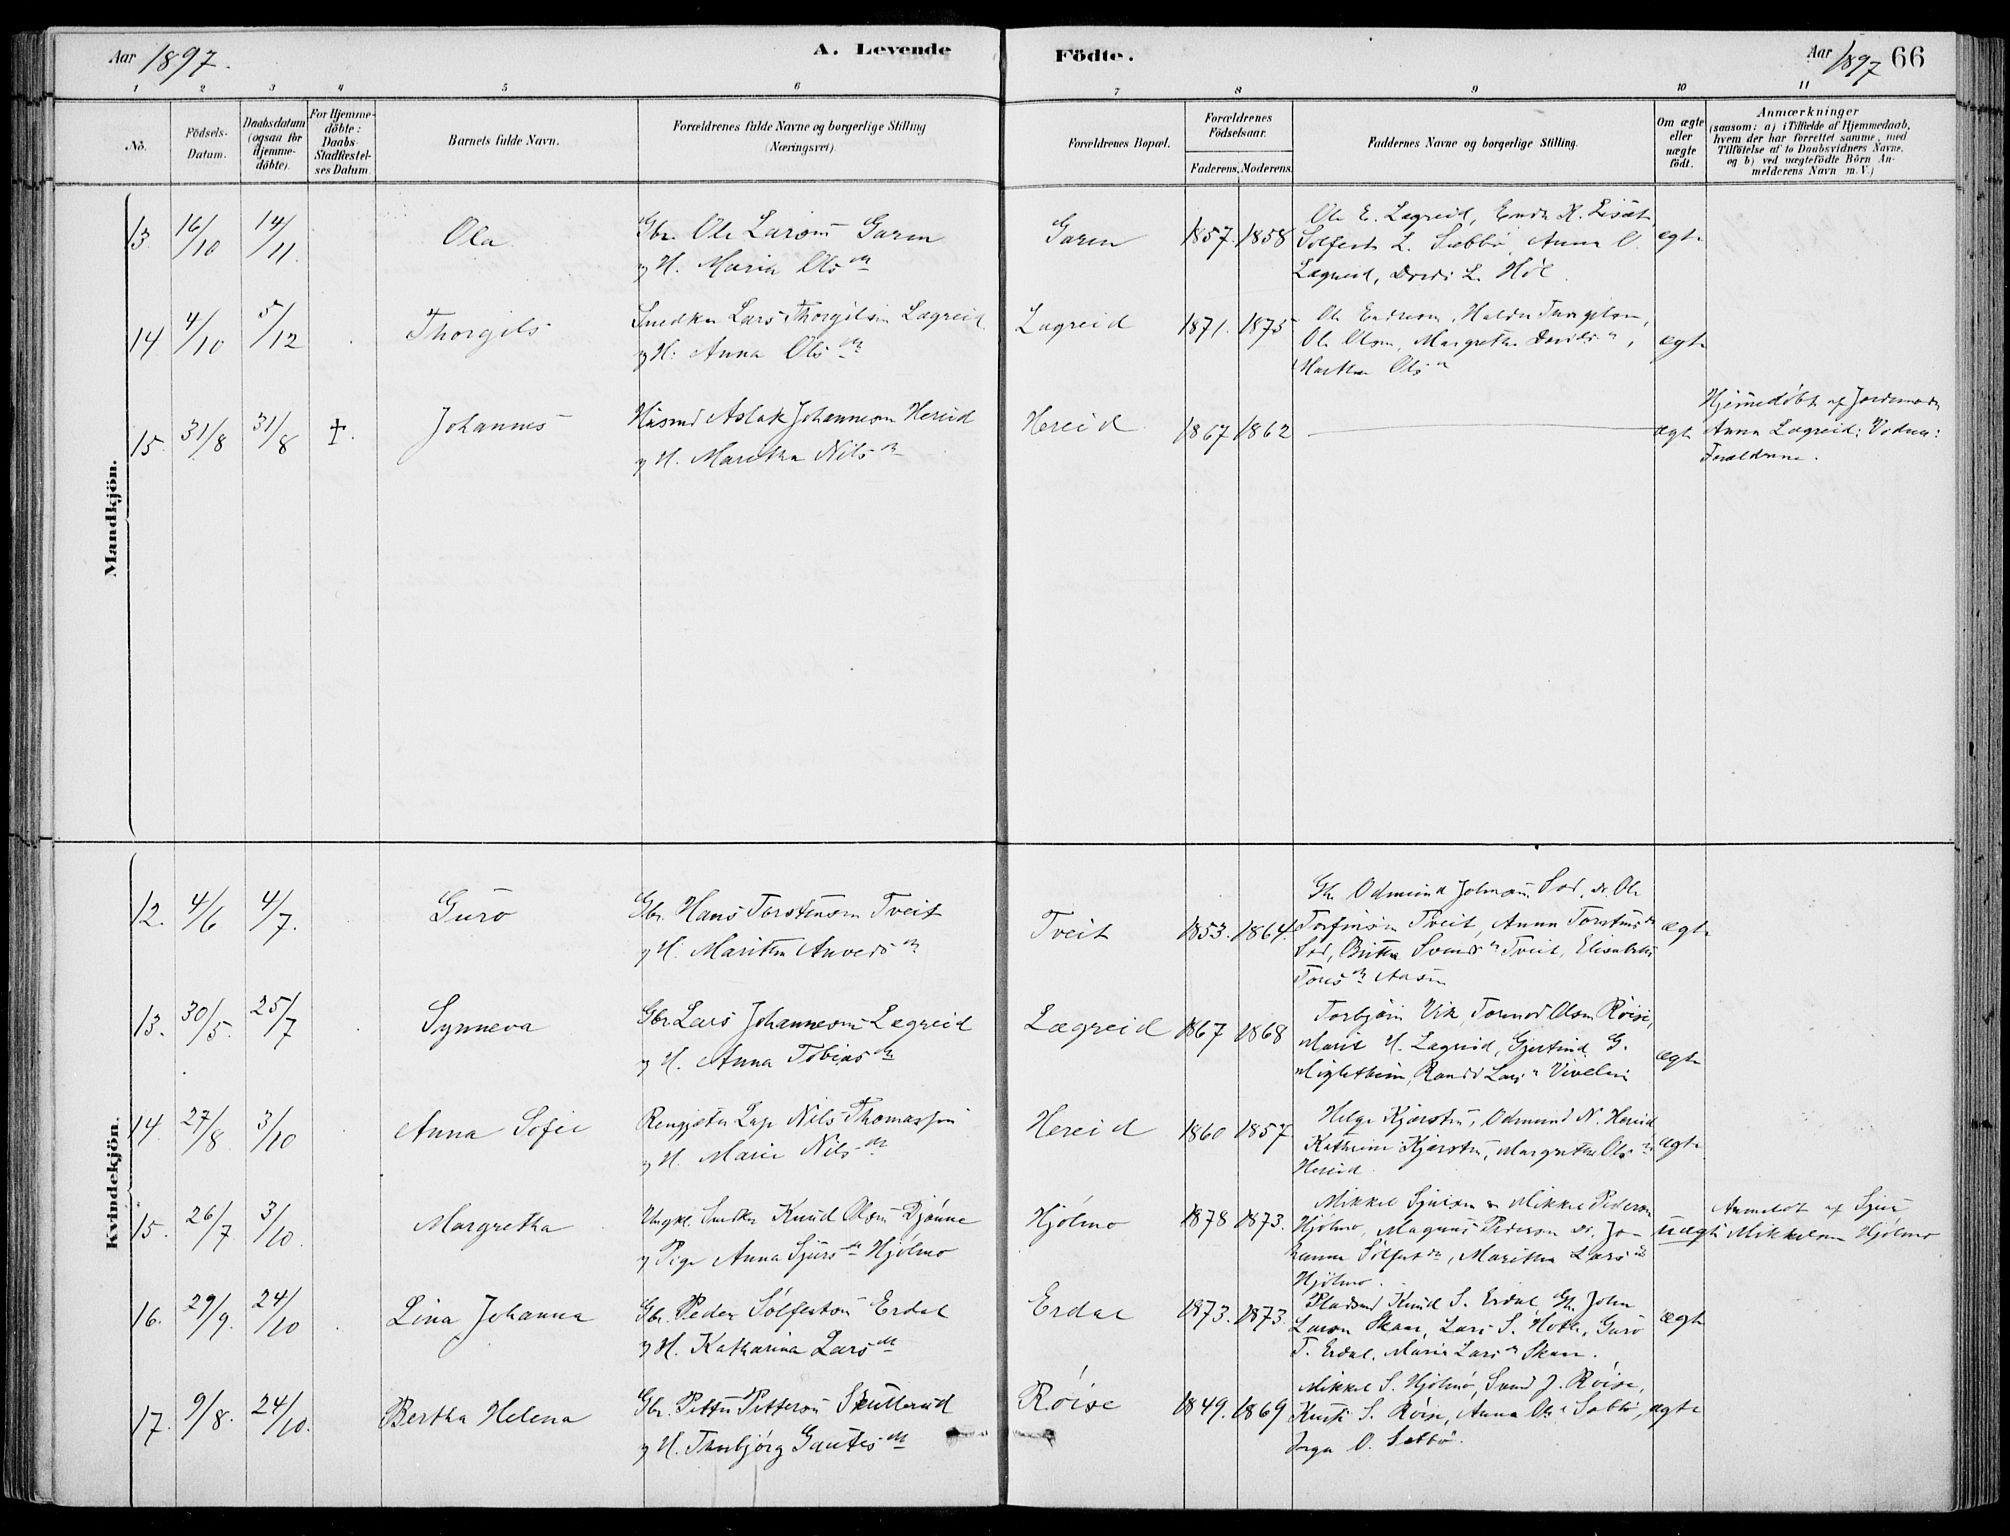 Aar 1897.
A. Levende Födte.
Aar 1897 66
1 2 3 4 5 6 7 8 9 10 11
No.
Födsels-Datum.
Daabsdatum (ogsaa for Hjemme-döbte).
For Hjemme-döbte: Daabs-Stadfæstel-ses Datum
Barnets fulde Navn.
Forældrenes fulde Navne og borgerlige Stilling (Næringsvei).
Forældrenes Bopæl.
Forældrenes Födselsaar.
Faderens. Moderens.
Faddernes Navne og borgerlige Stilling.
Om ægte eller uægte födt.
Anmærkninger
(saasom: a) i Tilfælde af Hjemmedaab,
hvem der har forrettet samme, med
Tilföielse af to Daabsvidners Navne,
og b) ved uægtefödte Börn An-
melderens Navn m. V.)
Mandkjön.
13 16/10 14/11 Ola
Gbr. Ole Larsen Garen
og H. Maria Olsdr
Garen 1857. 1858
Ole E. Lægreid,
Solfest L. Sæbbø, Anna O.
Lægreid, L. Høl.
ægte
14 4/10 5/12 Thorgils
Snedker Lars Thorgilsen Lægreid
og H. Anna Olsdr
Lægreid 1871. 1875
Ole Endreson, Halder
Ole Olsen, Margretha Davidsdr,
Martha Olsdr
ægte
15. 31/8 31/8 †. Johannes
Husmd Aslak Johanneson Hereid
og H. Maritha Nilsdr
Hereid 1867 1862
ægte
Hjemmedøbt af Jordemoder
Anna Lægreid: Vidner:
Forældrene.
Kvindekjön.
12. 4/6 4/7. Guro
Gbr. Hans Torstenson Tveit
og H. Maritha Anvedsdr
Tveit 1853. 1864.
Gbr. Odmund Johnsen Sæd, do. Ole
Torfinsen Tveit, Anna Torstensdr
Sæd, Britha Svendsdr Tveit, Elisabeth
Toresdr Aasen
ægte
13. 30/5. 25/7 Synneva
Gbr Lars Johanneson Lægreid
og H. Anna Tobiasdr
Lægreid 1867 1868
Torbjørn Vik, Tormod Olsen Røise,
Marit H. Lægreid, Gjertrud G.
Migletheim, Randi Larsdr Viveli
ægte
14. 27/8. 3/10 Anna Sofie
Rengjæter Lap Nils Thomassen
og H. Marie Nilsdr
Hereid 1860 1857
Helge Kjærstein, Odmund N. Hereid
Kathrine Kjærstein, Margretha Olsdr
Hereid.
ægte
15. 26/7 3/10. Margretha
Ungkl. Snedker Knud Olsen Djønne
og Pige Anna Sjursdr Hjølmo
Hjølmo 1878 1873.
Mikkel Sjursen & Mikkel Pederson
Hjølmo, Magnus Pederson do. Jo-
hanna Solfestdr, Maritha Larsdr
Hjølmo.
uægte
Anmeldt af Sjur
Mikkelson Hjølmo
16. 29/9. 24/10 Lina Johanna
Gbr. Peder Solfestson Erdal
og H. Katharina Larsdr
Erdal 1873. 1873.
Pladsmd Knud S. Erdal, Gbr. John
Larsen Skaar, Lars S. Hotle, Guro
T. Erdal, Maria Larsdr Skaar.
ægte
17. 9/8. 24/10. Bertha Helena
Gbr. Petter Petterson Skullerud
og H. Thorbjørg Gautesdr
Røise 1849. 1869
Mikkel S. Hjølmo, Svend J. Røise,
S. Røise, Anna Olsdr Sæbbø,
Inga O. Sæbbø.
ægte